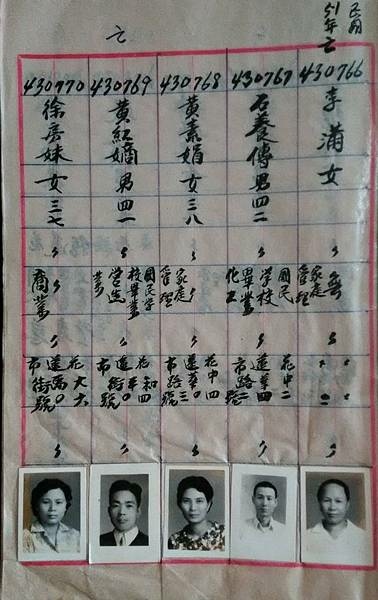 51年亡
亡
430766
李滿女
無
家庭管理
430767
石養傳男四二
國民學校畢業
化工
花中二
蓮華四
市路二號
430768
黃素娟女三八
家庭管理
花中四
蓮華0
市路三號
430769
黃紅嬌男四一
國民學校畢業
營造業
花和四
蓮平0
市街號
430770
徐房妹女三七
商業
花大六
蓮禹0
市街號